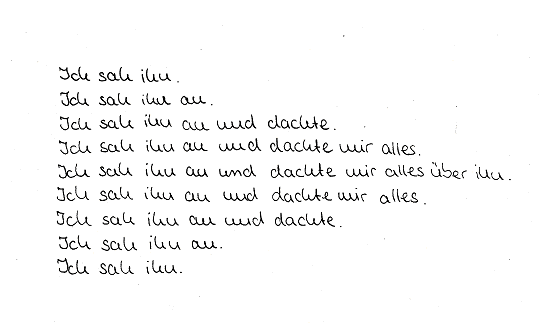 Ich sah ihn.
Ich sah ihn an.
Ich sah ihn an und dachte.
Ich sah ihn an und dachte mir alles.
Ich sah ihn an und dachte mir alles über ihn.
Ich sah ihn an und dachte mir alles.
Ich sah ihn an und dachte.
Ich sah ihn an.
Ich sah ihn.